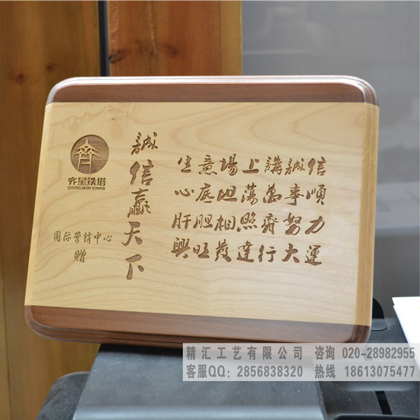 齐星铁塔
誠信赢天下
国际营销中心
赠
生意場上講誠信
心底坦蕩萬事順
肝胆相照齊努力
興旺發達行大運
精汇工艺有限公司 咨询 020-28982955
客服QQ：2856838320 热线 18613075477